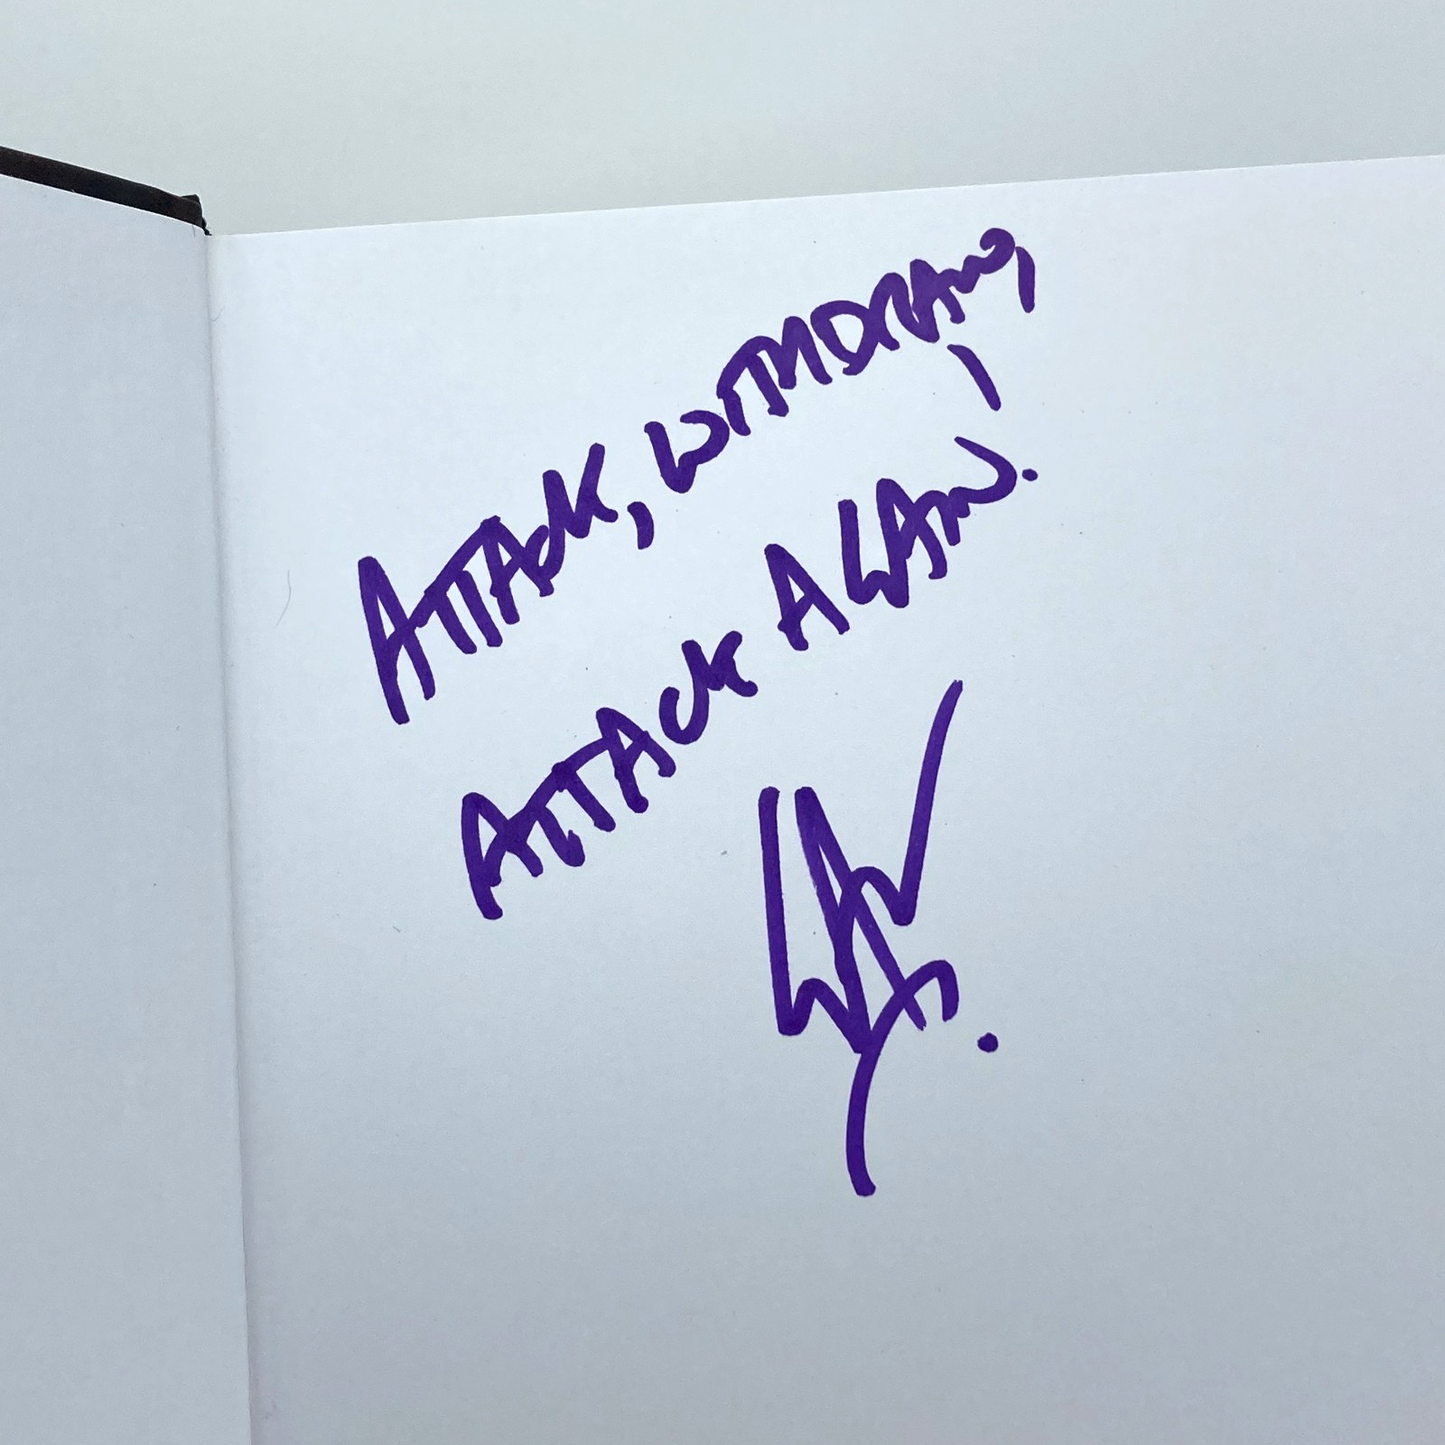 ATTACK, WITHDRAW,
ATTACK AGAIN.